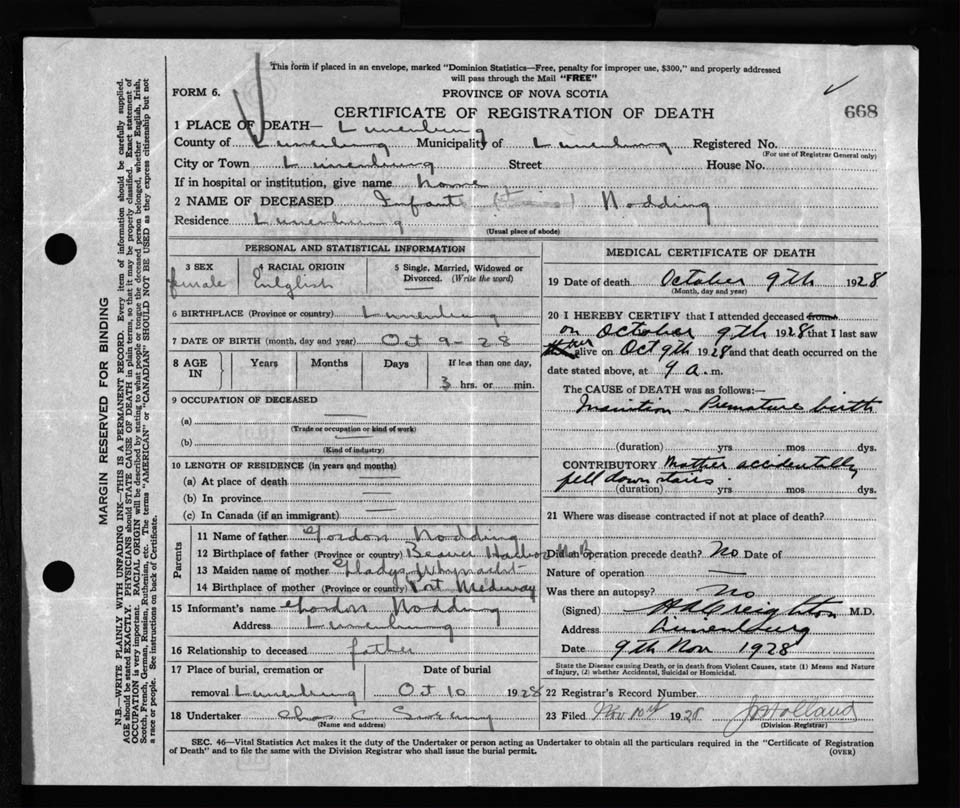 This form if placed in an envelope, marked "Dominion Statistics—Free, penalty for improper use, $300," and properly addressed
will pass through the Mail "FREE"
FORM 6.
PROVINCE OF NOVA SCOTIA
668
CERTIFICATE OF REGISTRATION OF DEATH
1 PLACE OF DEATH— Lunenburg
County of Lunenburg Municipality of Lunenburg Registered No.
(For use of Registrar General only)
City or Town Lunenburg Street House No.
If in hospital or institution, give name home
2 NAME OF DECEASED Infant (Twins) Nodding
Residence Lunenburg
(Usual place of abode)
PERSONAL AND STATISTICAL INFORMATION
3 SEX 4 RACIAL ORIGIN 5 Single, Married, Widowed or
Divorced. (Write the word)
female English
6 BIRTHPLACE (Province or country) Lunenburg
7 DATE OF BIRTH (month, day and year) Oct 9 - 28
8 AGE IN Years Months Days If less than one day,
3 hrs. or min.
9 OCCUPATION OF DECEASED
(a)
(Trade or occupation or kind of work)
(b)
(Kind of industry)
10 LENGTH OF RESIDENCE (in years and months)
(a) At place of death
(b) In province
(c) In Canada (if an immigrant)
Parents
11 Name of father Gordon Nodding
12 Birthplace of father (Province or country) Beaver Harbor
13 Maiden name of mother Gladys
14 Birthplace of mother (Province or country) Port Medway
15 Informant's name Gordon Nodding
Address Lunenburg
16 Relationship to deceased father
17 Place of burial, cremation or Date of burial
removal Lunenburg Oct 10 1928
18 Undertaker Chas C Sweeny
(Name and address)
MEDICAL CERTIFICATE OF DEATH
19 Date of death October 9th 1928
(Month, day and year)
20 I HEREBY CERTIFY that I attended deceased from
on October 9th 1928 that I last saw
her alive on Oct 9th 1928 and that death occurred on the
date stated above, at 9 a.m.
The CAUSE of DEATH was as follows:—
Inanition - Premature birth
(duration) yrs mos dys.
CONTRIBUTORY Mother accidentally
fell down stairs.
(duration) yrs. mos. dys.
21 Where was disease contracted if not at place of death?
Did an operation precede death? No Date of
Nature of operation —
Was there an autopsy? No
(Signed) H A Creighton M.D.
Address Lunenburg
Date 9th Nov 1928
State the Disease causing Death, or in death from Violent Causes, state (1) Means and Nature
of Injury, and (2) whether Accidental, Suicidal or Homicidal.
22 Registrar's Record Number
23 Filed Nov 10th 1928 Holland
(Division Registrar)
SEC. 46—Vital Statistics Act makes it the duty of the Undertaker or person acting as Undertaker to obtain all the particulars required in the "Certificate of Registration
of Death" and to file the same with the Division Registrar who shall issue the burial permit.
(OVER)
MARGIN RESERVED FOR BINDING
N.B.—WRITE PLAINLY WITH UNFADING INK—THIS IS A PERMANENT RECORD. Every item of information should be carefully supplied.
AGE should be stated EXACTLY. PHYSICIANS should STATE CAUSE OF DEATH in plain terms, so that it may be properly classified. Exact statement of
OCCUPATION is very important. RACIAL ORIGIN will be described by stating to what people or tongue the deceased person belonged, whether English, Irish,
Scotch, French, German, Russian, Ruthenian, etc. The terms "AMERICAN" or "CANADIAN" SHOULD NOT BE USED as they express citizenship but not
a race or people. See instructions on back of Certificate.